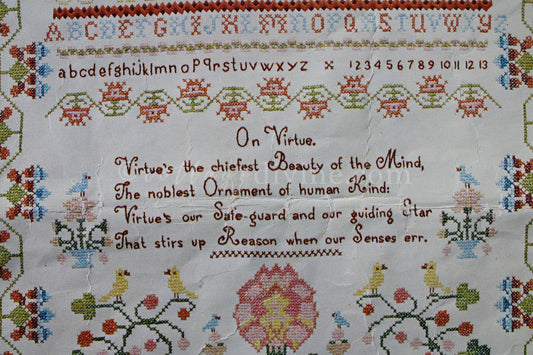 ABCDEFGHIJKLMNOPQRSTUVWXYZ
abcdefghijklmnopqrstuvwxyz 1 2 3 4 5 6 7 8 9 10 11 12 13
On Virtue.
Virtue's the chiefest Beauty of the Mind,
The noblest Ornament of human Kind:
Virtue's our Safe-guard and our guiding Star
That stirs up Reason when our Senses err.